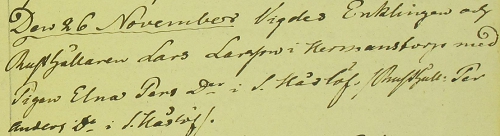 Den 26 November Vigdes Enklingen och
Rusthållaren Lars Larsson i Hermanstorp med
Pigen Elna Pers Dr i S. Håslöf. /Rusthåll: Per
Anders Dr i S. Håslöf/.